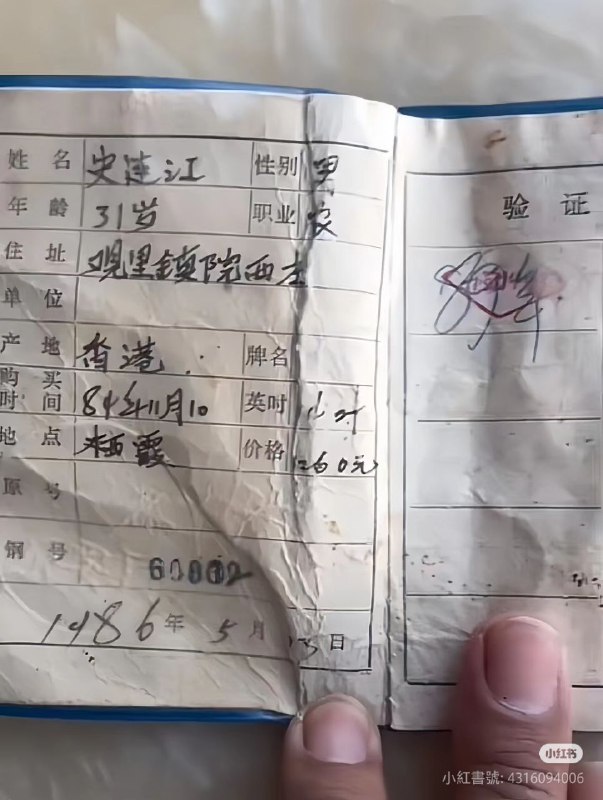 姓名 史连江 性别 男
年龄 31岁 职业 农
住址 观里镇院西庄
单位
产地 香港 牌名
购买时间 84年11月10 英吋
地点 栖霞 价格 260元
原号
钢号
1986年5月13日
验证
小红书
小紅書號: 4316094006